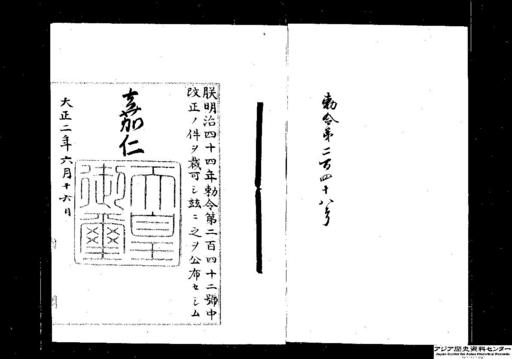 勅令第二百四十八号
朕明治四十四年勅令第二百四十二號中
改正ノ件ヲ裁可シ茲ニ之ヲ公布セシム
嘉仁
天皇
御璽
大正二年六月十六日
アジア歴史資料センター
Japan Center for Asian Historical Records